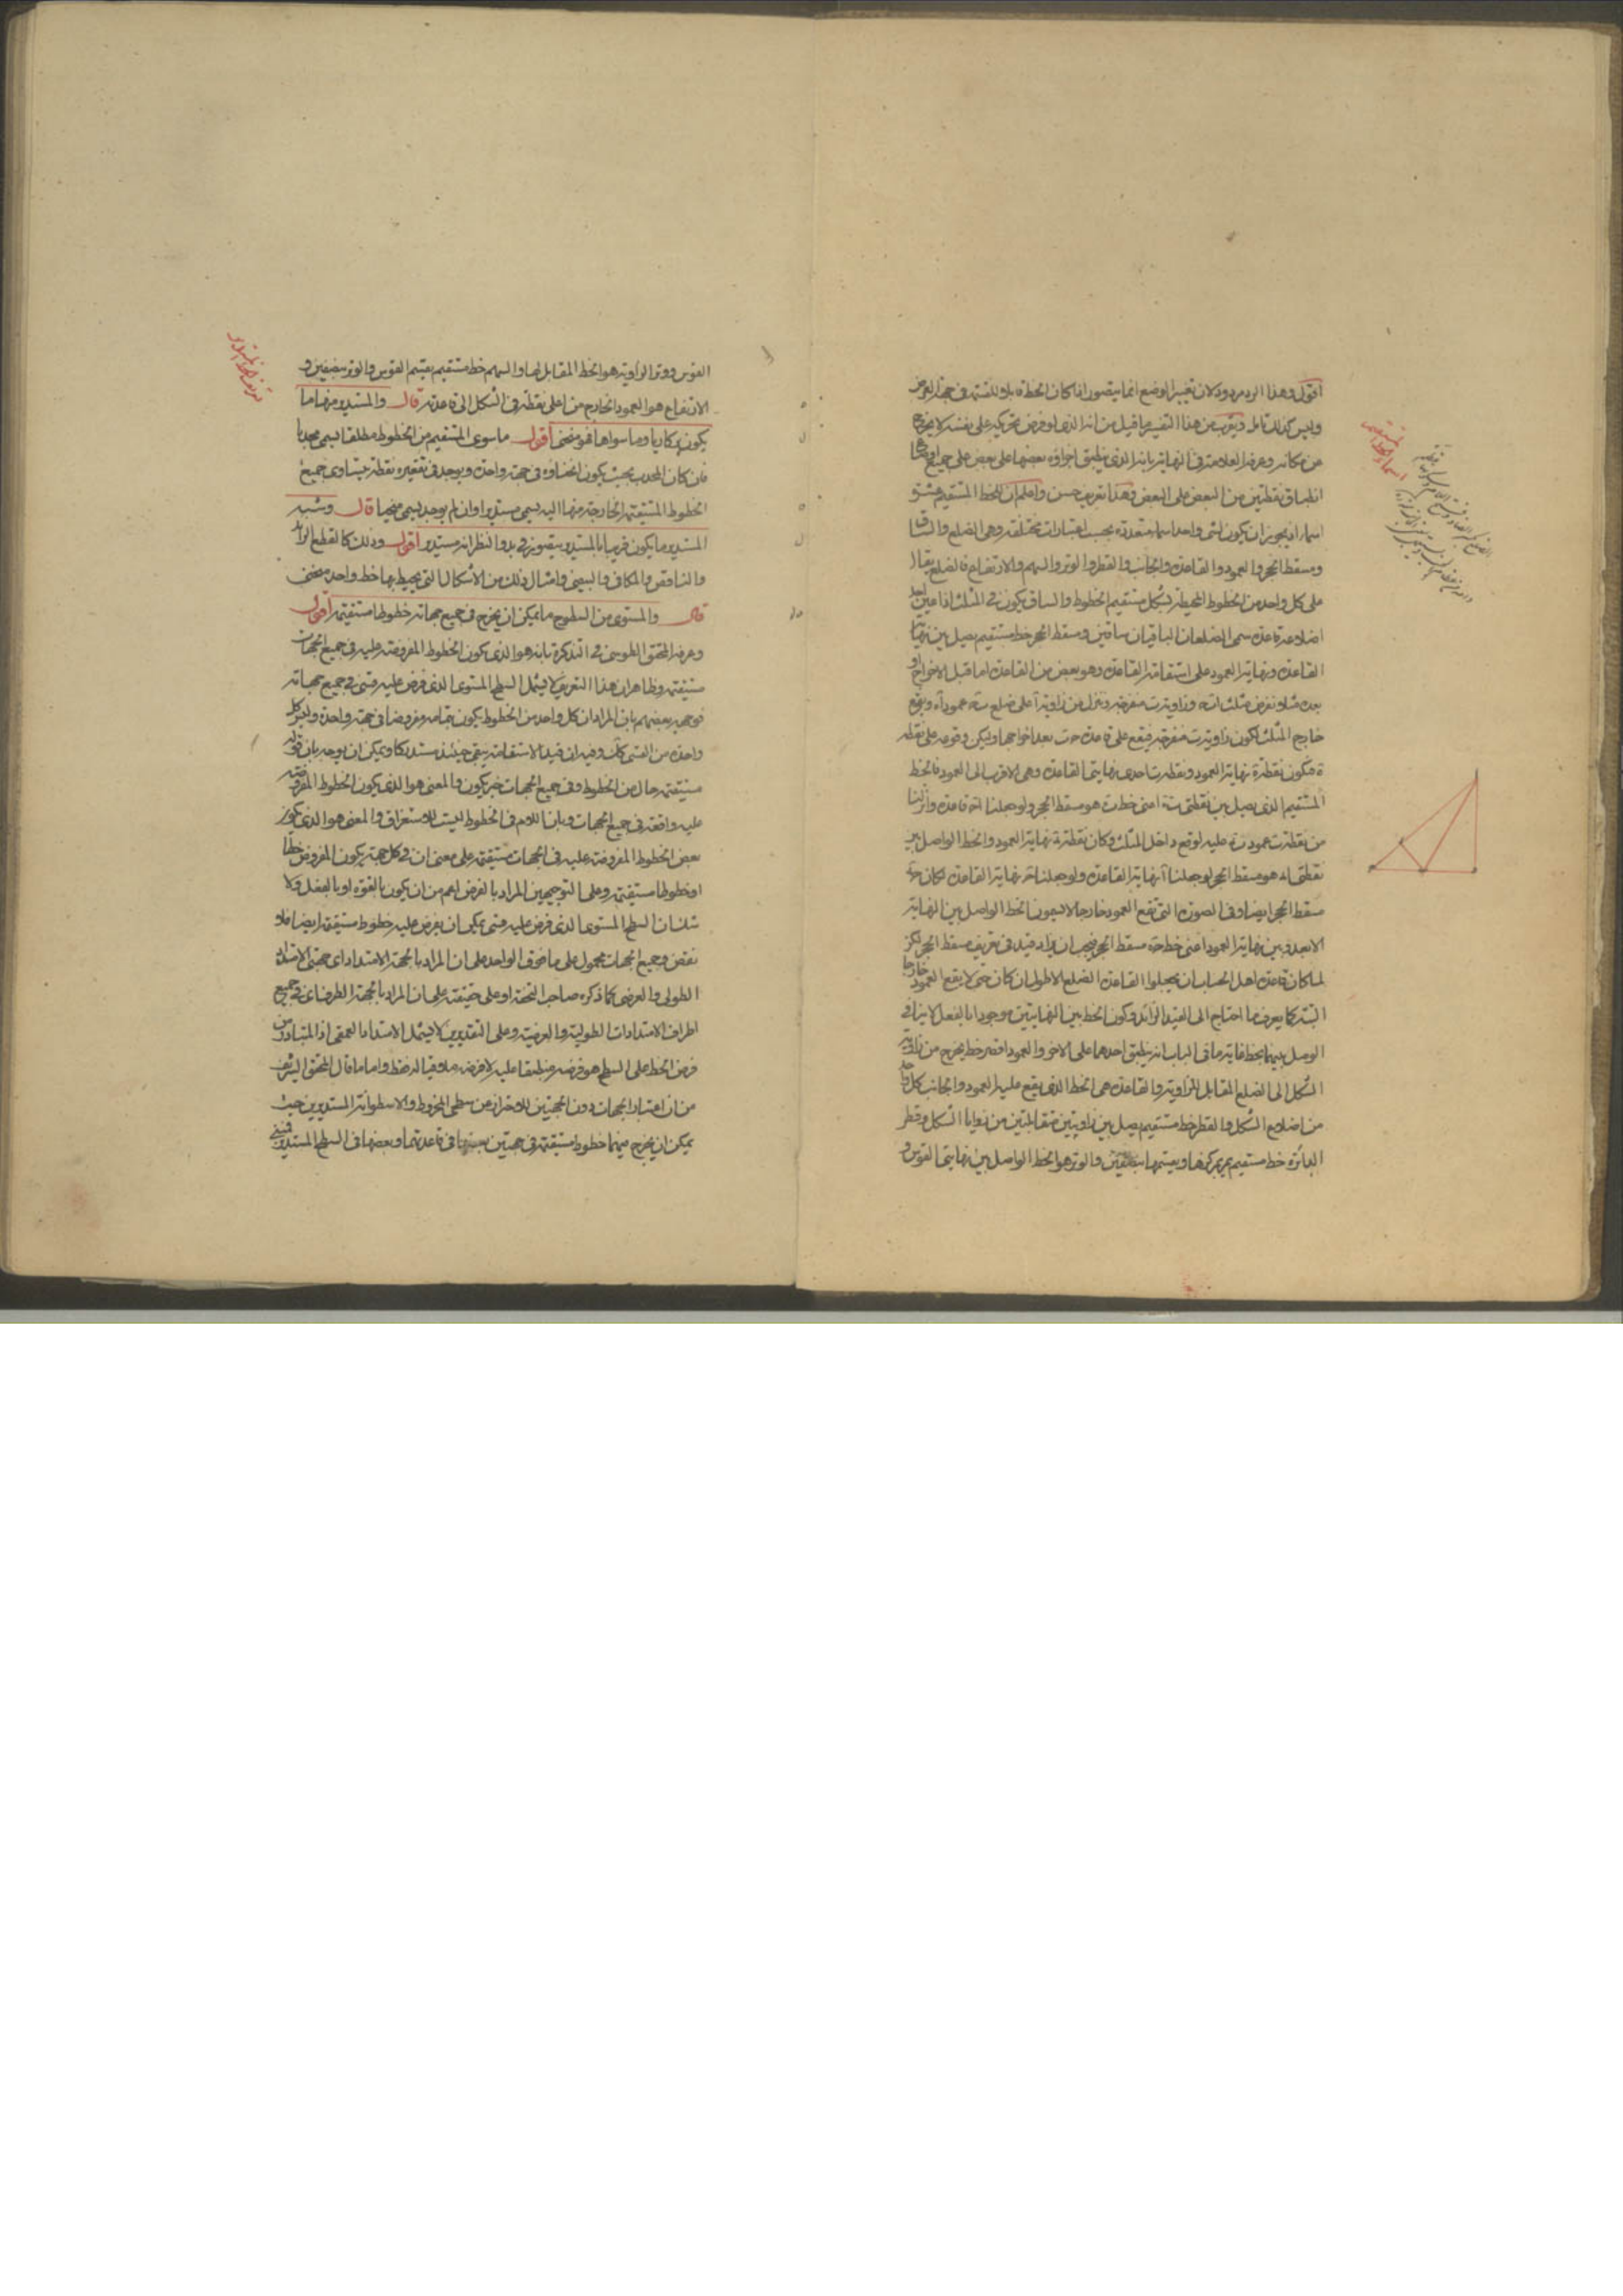 اقول وهذا الرد مردود لان تغيير الوضع انما يتصور اذا كان الخط قابلا للقسمة فى جهة العرض
وليس كذلك تامل ويقرب من هذا التفسير ما قيل من انه الذى لو فرض تحريكه على نفسه لا يخرج
من مكانه وعرفه العلامة فى النهاية بانه الذى ينطبق اجزاؤه بعضها على بعض على جميع اوضاع
انطباق نقطتين من البعض على البعض وهذا تعريف حسن واعلم ان للخط المستقيم عشرة
اسماء اذ يجوز ان يكون لشى واحد اسماء متعددة بحسب اعتبارات مختلفة وهى الضلع والساق
ومسقط الحجر والعمود والقاعدة والجانب والقطر والوتر والسهم والارتفاع فالضلع يقال
على كل واحد من الخطوط المحيطة بشكل مستقيم الخطوط والساق يكون فى المثلث اذا عين احد
اضلاعه قاعدة سمى الضلعان الباقيان ساقين ومسقط الحجر خط مستقيم يصل بين نهاية
القاعدة ونهاية العمود على استقامة القاعدة وهو بعض من القاعدة اما قبل الاخراج او
بعده مثلا نفرض مثلث وزاوية منفرجة وننزل من زاوية على ضلع عمود ويقع
خارج المثلث لكون زاوية منفرجة فيقع على قاعدة بعد اخراجها وليكن وقوعه على نقطة
ه فيكون نقطة ه نهاية العمود ونقطة احدى نهايتى القاعدة وهى الاقرب الى العمود فالخط
المستقيم الذى يصل بين نقطتى اعنى خط هو مسقط الحجر ولو جعلنا قاعدة وانزلنا
من نقطة عمود عليه لوقع داخل المثلث وكان نقطة نهاية العمود والخط الواصل بين
نقطتى هو مسقط الحجر لو جعلنا نهاية القاعدة ولو جعلنا نهاية القاعدة لكان
مسقط الحجر ايضا وفى الصورة التى تقع العمود خارجا لا يسمون الخط الواصل بين النهاية
الابعد وبين نهاية العمود اعنى خط مسقط الحجر فيجب ان يزاد قيد فى تعريف مسقط الحجر لكن
لما كان قاعدة اهل الحساب ان يجعلوا القاعدة الضلع الاطول ان كان حتى لا يقع العمود خارجا
البتة كما يعرف ما احتاج الى القيد الزائد وكون الخط بين النهايتين موجودا بالفعل لا ينافى
الوصل بينهما بخط غاية ما فى الباب انه ينطبق احدهما على الاخر والعمود اقصر خط يخرج من زاوية
الشكل الى الضلع المقابل للزاوية والقاعدة هى الخط الذى يقع عليه العمود والجانب كل واحد
من اضلاع الشكل والقطر خط مستقيم يصل بين زاويتين متقابلتين من زوايا الشكل وقطر
الدائرة خط مستقيم يمر بمركزها ويقسمها بنصفين والوتر هو الخط الواصل بين نهايتى القوس و
القوس ووتر الزاوية هو الخط المقابل لها والسهم خط مستقيم يقسم القوس والوتر بنصفين و
الارتفاع هو العمود الخارج من اعلى نقطة فى الشكل الى قاعدته قال والمستدير منها ما
يكون بركاريا وما سواها فهو منحنى اقول ما سوى المستقيم من الخطوط مطلقا يسمى محدبا
فان كان المحدب بحيث يكون انحناؤه فى جهة واحدة ويوجد فى تقعيره نقطة يتساوى جميع
الخطوط المستقيمة الخارجة منها اليه يسمى مستديرا وان لم يوجد يسمى منحنيا قال وشبه
المستدير ما يكون قريبا بالمستدير يتصور فى بدو النظر انه مستدير اقول وذلك كالقطع الزائد
والناقص والمكافى والبيضى وامثال ذلك من الاشكال التى يحيط بها خط واحد منحنى
قال والمستوى من السطوح ما يمكن ان يخرج فى جميع جهاته خطوط مستقيمة اقول
وعرفه المحقق الطوسى فى التذكرة بانه هو الذى يكون الخطوط المفروضة عليه فى جميع الجهات
مستقيمة وظاهر ان هذا التعريف لا يشمل السطح المستوى الذى فرض عليه قسى فى جميع جهاته
فوجهه بعضهم بان المراد ان كل واحد من الخطوط يكون بتمامه مفروضا فى جهة واحدة وليس كل
واحدة من القسى كك وفيه ان قيد الاستقامة يبقى حينئذ مستدركا ويمكن ان يوجه بان قوله
مستقيمة حال من الخطوط وفى جميع الجهات خبر يكون والمعنى هو الذى يكون الخطوط المفروضة
عليه واقعة فى جميع الجهات وبان اللام فى الخطوط ليست للاستغراق والمعنى هو الذى يكون
بعض الخطوط المفروضة عليه فى الجهات مستقيمة على معنى ان فى كل جهة يكون المفروض خطا
او خطوطا مستقيمة وعلى التوجيهين المراد بالفرض اعم من ان يكون بالقوة او بالفعل ولا
شك ان السطح المستوى الذى فرض عليه قسى يمكن ان يفرض عليه خطوط مستقيمة ايضا فلا
نقض وجميع الجهات محمول على ما فوق الواحد على ان المراد بالجهة الامتداد اى جهتى الامتداد
الطولى والعرضى كما ذكره صاحب التحفة او على حقيقته على ان المراد بالجهة الطرف اى فى جميع
اطراف الامتدادات الطولية والعرضية وعلى التقديرين لا يشمل الامتداد العمقى اذ المتبادر من
فرض الخط على السطح هو فرضه منطبقا عليه لا فرضه ملاقيا له فقط واما ما قال المحقق الشريف
من ان اعتبار الجهات دون الجهتين للاحتراز عن سطحى المخروط والاسطوانة المستديرين حيث
يمكن ان يخرج فيهما خطوط مستقيمة فى جهتين بعضها فى قاعدتهما وبعضها فى السطح المستدير